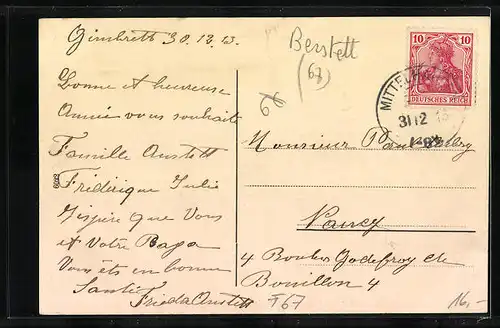 Gimbrett 30.12.13.
Bonne et heureuse
Année vous souhaite
Famille Anstett
Fréderique Julie
J'espère que Vous
et Votre Papa
Vous êts en bonne
Santé Frieda Anstett
Berstett
(67)
67
10 10
DEUTSCHES REICH
MITTEL
31 12 13
Monsieur Paul
Nancy
4 Boulev Godefroy de
Bouillon 4
T67
16,-